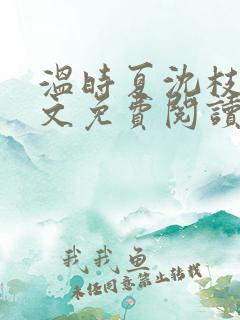 溫時夏沈枝
文免費閱讀
我我魚
未经同意禁止转载